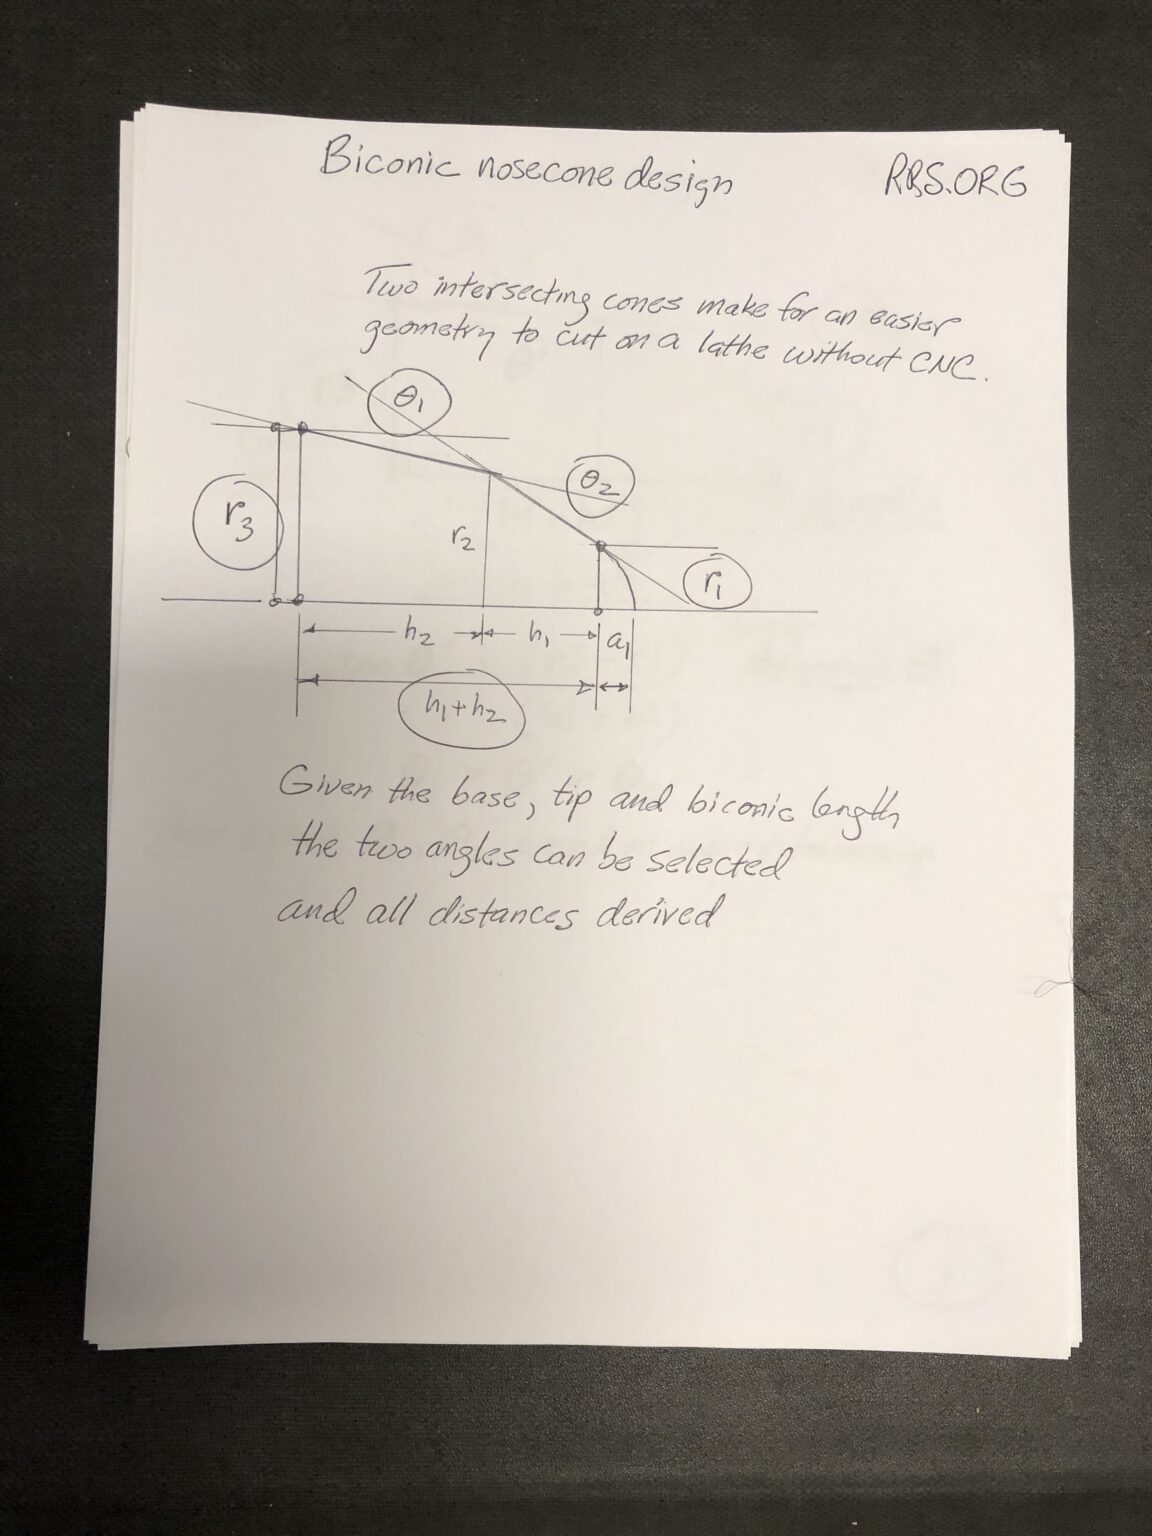 Biconic nosecone design
RRS.ORG
Two intersecting cones make for an easier
geometry to cut on a lathe without CNC.
θ₁
θ₂
r₃
r₂
r₁
h₂
h₁
a₁
h₁+h₂
Given the base, tip and biconic length
the two angles can be selected
and all distances derived